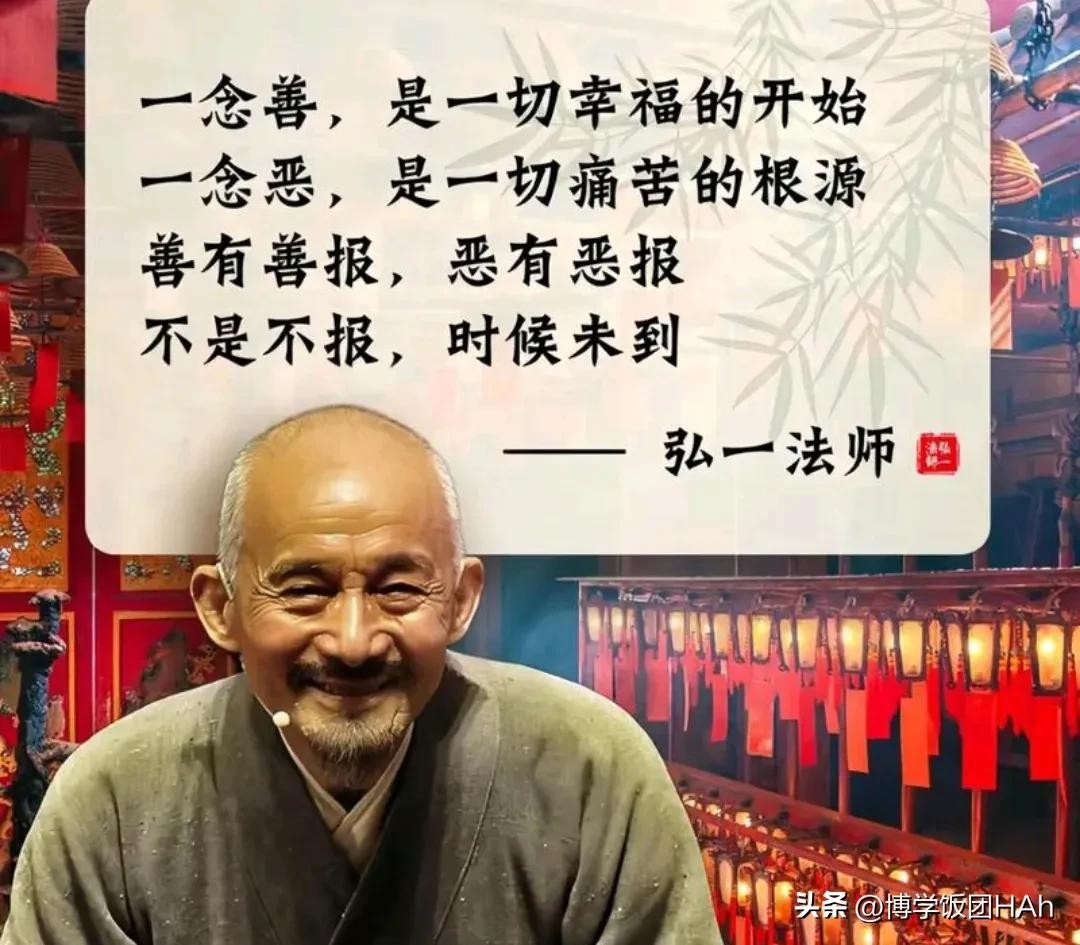 一念善，是一切幸福的开始
一念恶，是一切痛苦的根源
善有善报，恶有恶报
不是不报，时候未到
—— 弘一法师
弘一法師
头条 @博学饭团HAh